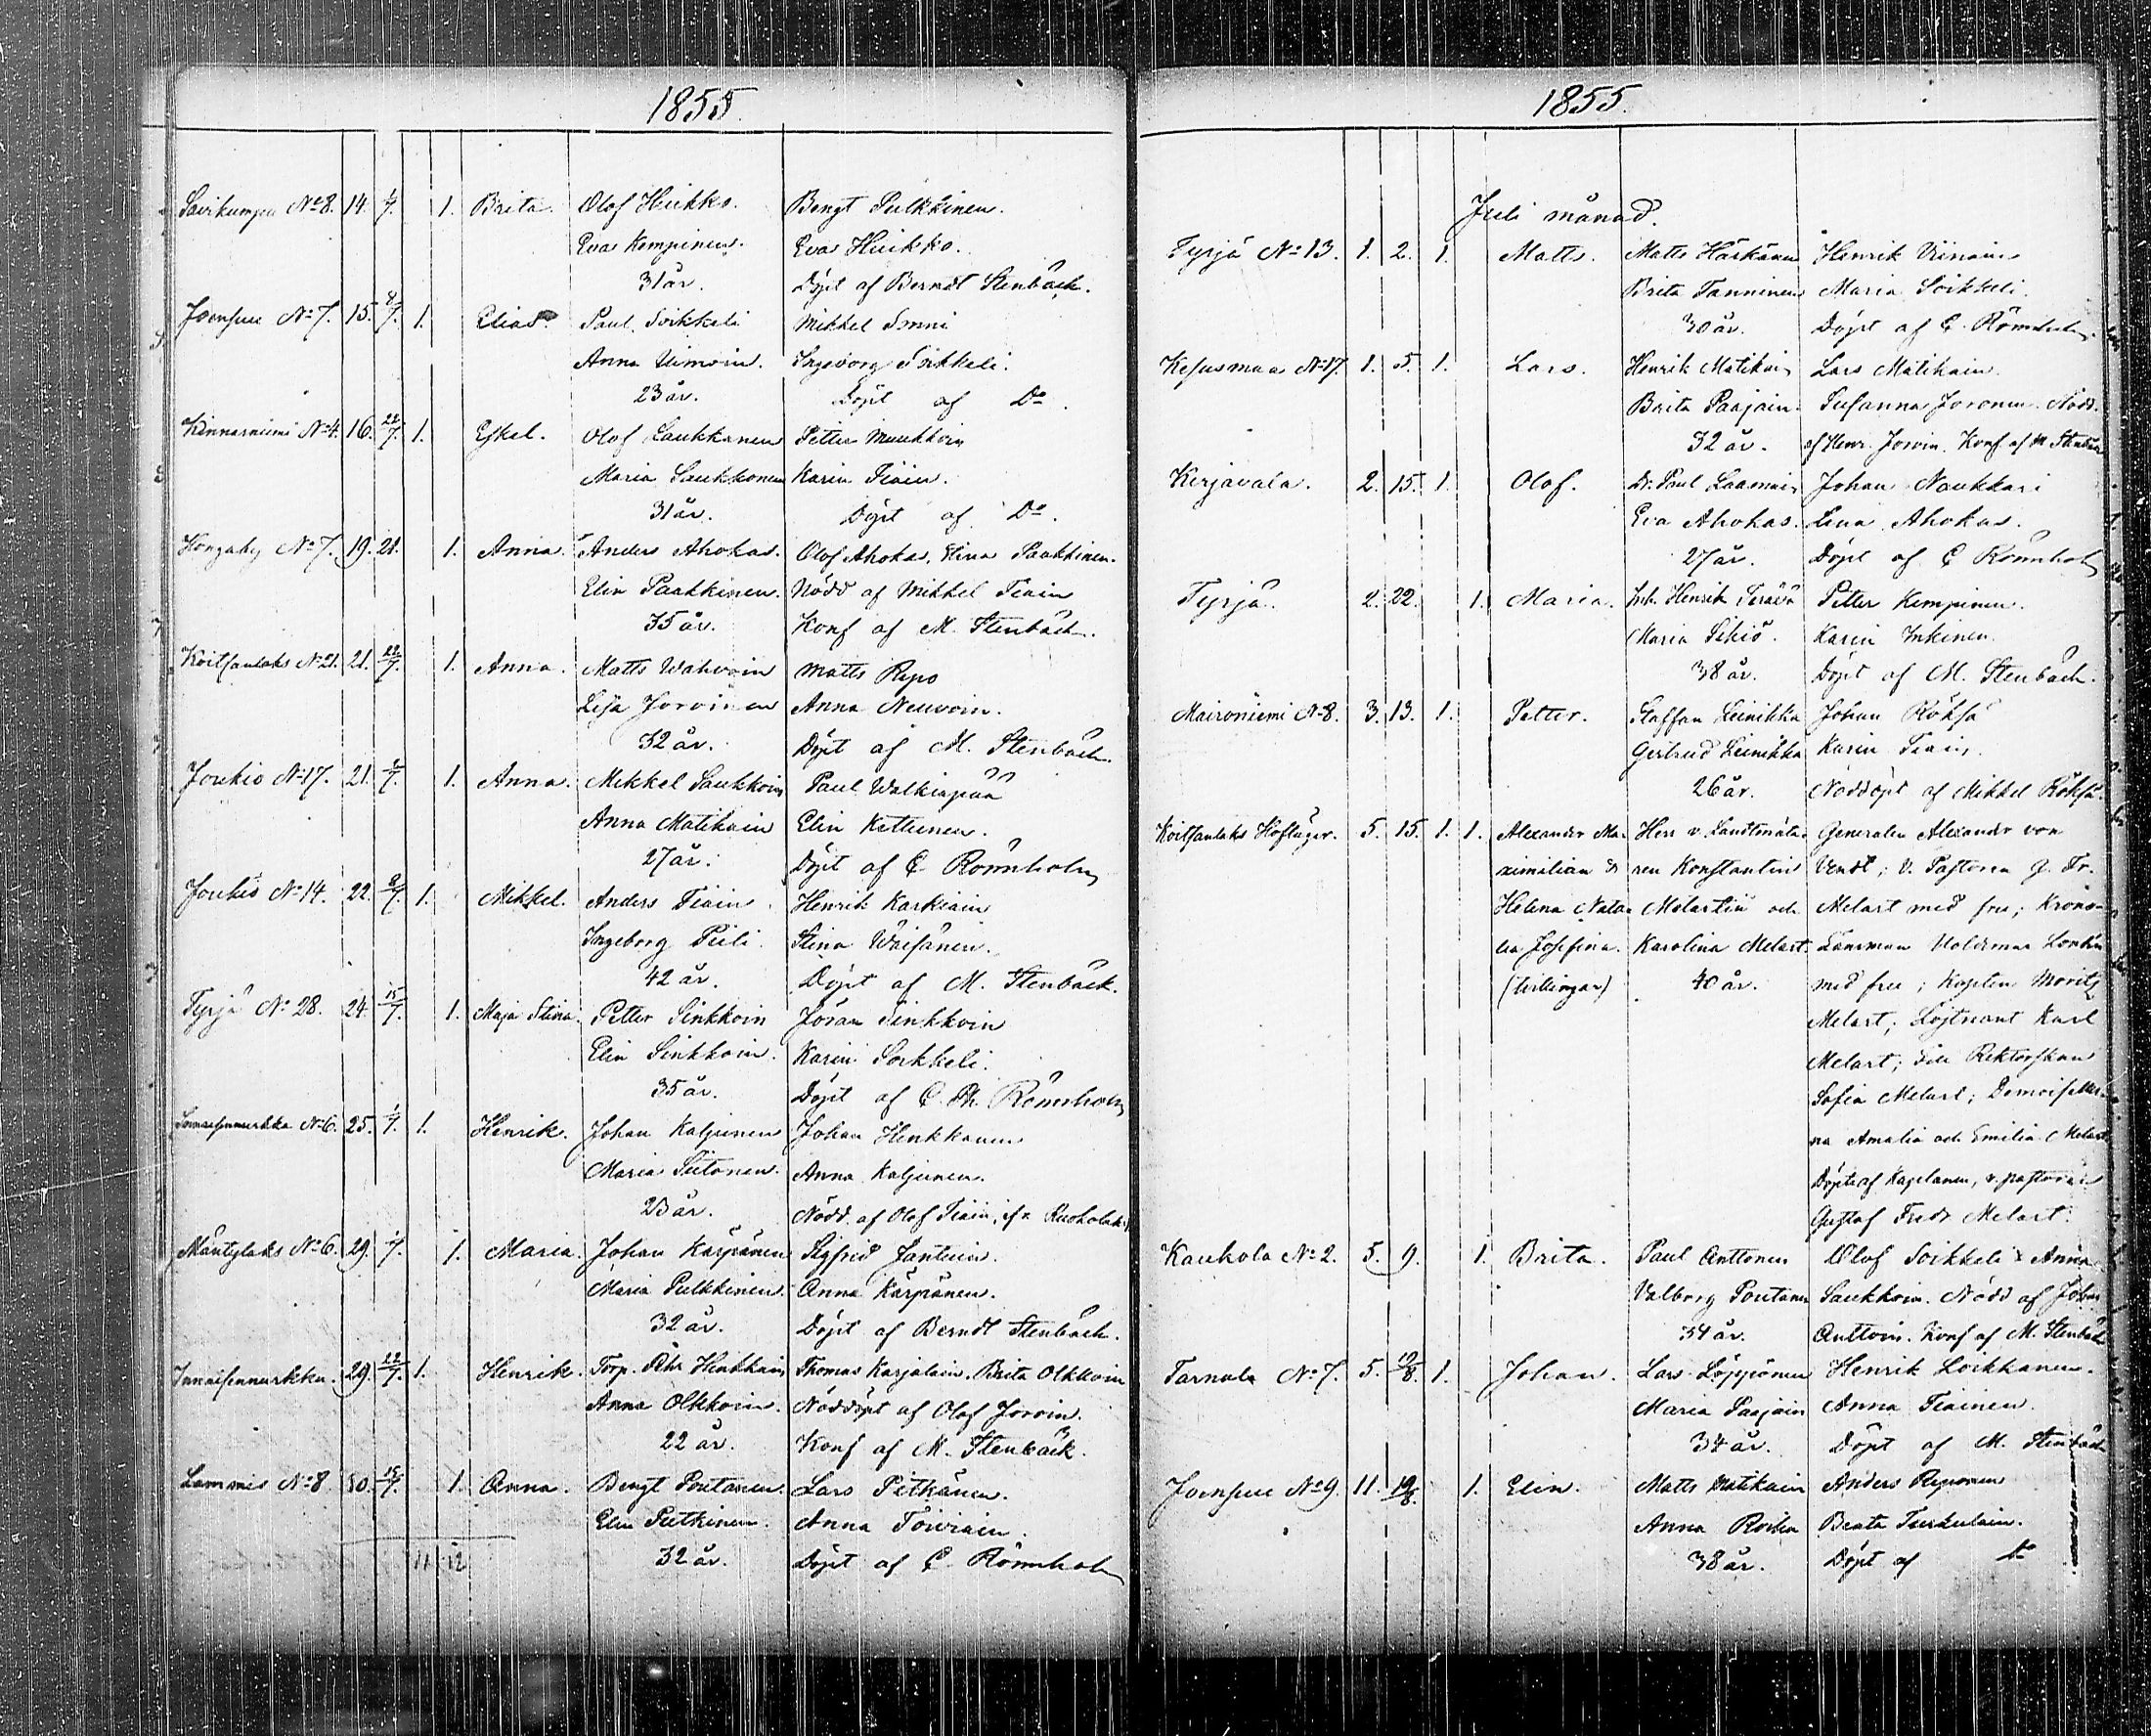 1855.
Savikumpu No 8. 14. 1/7. 1. Brita. Olof Huikko. Bengt Pulkkinen.
Eva Kempinen. Eva Huikko.
31 år. Döpt af Berndt Stenbäck.
Joensuu No 7. 15. 4/7. 1. Elias. Paul Soikkeli Mikkel Immi
Anna Uimoin. Ingeborg Soikkeli.
23 år. Döpt af Do.
Kinnarniemi No 4. 16. 22/7. 1. Eskel. Olof Laukkanen Petter Muukkoin
Maria Saukkonen Karin Tiain.
31 år. Döpt af Do.
No 7. 19. 21. 1. Anna. Anders Ahokas. Olof Ahokas, Stina Paakkinen.
Elin Paakkinen. Nödd af Mikkel Tiain
35 år. Konf af M. Stenbäck.
Koitsanlaks No 21. 21. 22/7. 1. Anna. Matts Wahvoin Matts Repo
Lisa Joroinen Anna Neuvoin.
32 år. Döpt af M. Stenbäck.
Joukio No 17. 21. 1. Anna. Mikkel Saukkoin Paul Walkiapää
Anna Matikain Elin Kettunen.
27 år. Döpt af C Rönnholm
Joukio No 14. 22. 8/7. 1. Mikkel. Anders Tiain Henrik Karkiain
Ingeborg Piili. Stina Wäisänen.
42 år. Döpt af M. Stenbäck.
Tyrjä No 28. 24. 15/7. 1. Maja Stina. Petter Sinkkoin Jöran Sinkkoin
Elin Sinkkoin. Karin Soikkeli.
35 år. Döpt af C. Th. Rönnholm
No 6. 25. 1/7. 1. Henrik. Johan Kaljunen Johan Henkkanen
Maria Siitonen. Anna Kaljunen.
23 år. Nödd. af Olof Tiain, ifr. Ruokolaks
Mäntylaks No 6. 29. 1/7. 1. Maria. Johan Kärpänen Sigfrid Jantuin.
Maria Pulkkinen Anna Kärpänen.
32 år. Döpt af Berndt Stenbäck.
Innaisennurkka. 29. 22/7. 1. Henrik. Torp. Pehr Henkkain Thomas Karjalain. Brita Olkkoin
Anna Olkkoin. Nöddöpt af Olof Joroin.
22 år. Konf af M. Stenbäck.
Lammis No 8. 30. 15/7. 1. Anna. Bengt Poutanen. Lars Pitkänen.
Elin Putkinen. Anna Toiviain.
11 12 32 år. Döpt af C. Rönnholm
1855.
Juli månad.
Tyrjä No 13. 1. 2. 1. Matts. Matts Härkänen Henrik Väinäin
Brita Tanninen Maria Soikkeli.
30 år. Döpt af C. Rönnholm
Kesusmaa No 17. 1. 5. 1. Lars. Henrik Matikain Lars Matikain.
Brita Paajain. Susanna Joronen. Nödd.
32 år. af Henr. Joroin. Konf af M Stenbäck
Kirjavala. 2. 15. 1. Olof. Dr. Paul Laamain Johan Naukkari
Eva Ahokas. Lena Ahokas.
27 år. Döpt af C Rönnholm
Tyrjä. 2. 22. 1. Maria. Inh. Henrik Terävä Petter Kempinen.
Maria Sihvo. Karin Inkinen.
38 år. Döpt af M. Stenbäck.
Maironiemi No 8. 3. 13. 1. Petter. Staffan Leinikka Johan Röksä
Gertrud Leinikka Karin Tiain.
26 år. Nöddöpt af Mikkel Röksä.
Koitsanlaks Hofläger. 5. 15. 1. 1. Alexander Ma- Herr v. Landtmäta- Generalen Alexander von
ximilian & ren Konstantin Vendt; V. Pastoren G. Fr.
Helena Nata- Melartin och Melart med fru; Krono-
lia Josefina. Karolina Melart. Länsman Woldemar Londén
(tvillingar) 40 år. med fru; Kapten Moritz
Melart; Löjtnant Karl
Melart; Enke Rektorskan
Sofia Melart; Demoiseller-
na Amalia och Emilia Melart
Döpte af Kapelanen, v. pastoren
Gustaf Fredr Melart.
Kauhola No 2. 5. 9. 1. Brita. Paul Anttonen Olof Soikkeli & Anna
Valborg Poutanen Saukkoin. Nödd af Johan
34 år. Anttoin. Konf af M. Stenbäck
Tarnala No 7. 5. 12/8. 1. Johan. Lars Löppönen Henrik Loikkanen.
Maria Paajain Anna Tiainen.
34 år. Döpt af M. Stenbäck
Joensuu No 9. 11. 19/8. 1. Elin. Matts Matikain Anders Reponen
Anna Beata Turkulain.
38 år. Döpt af Do